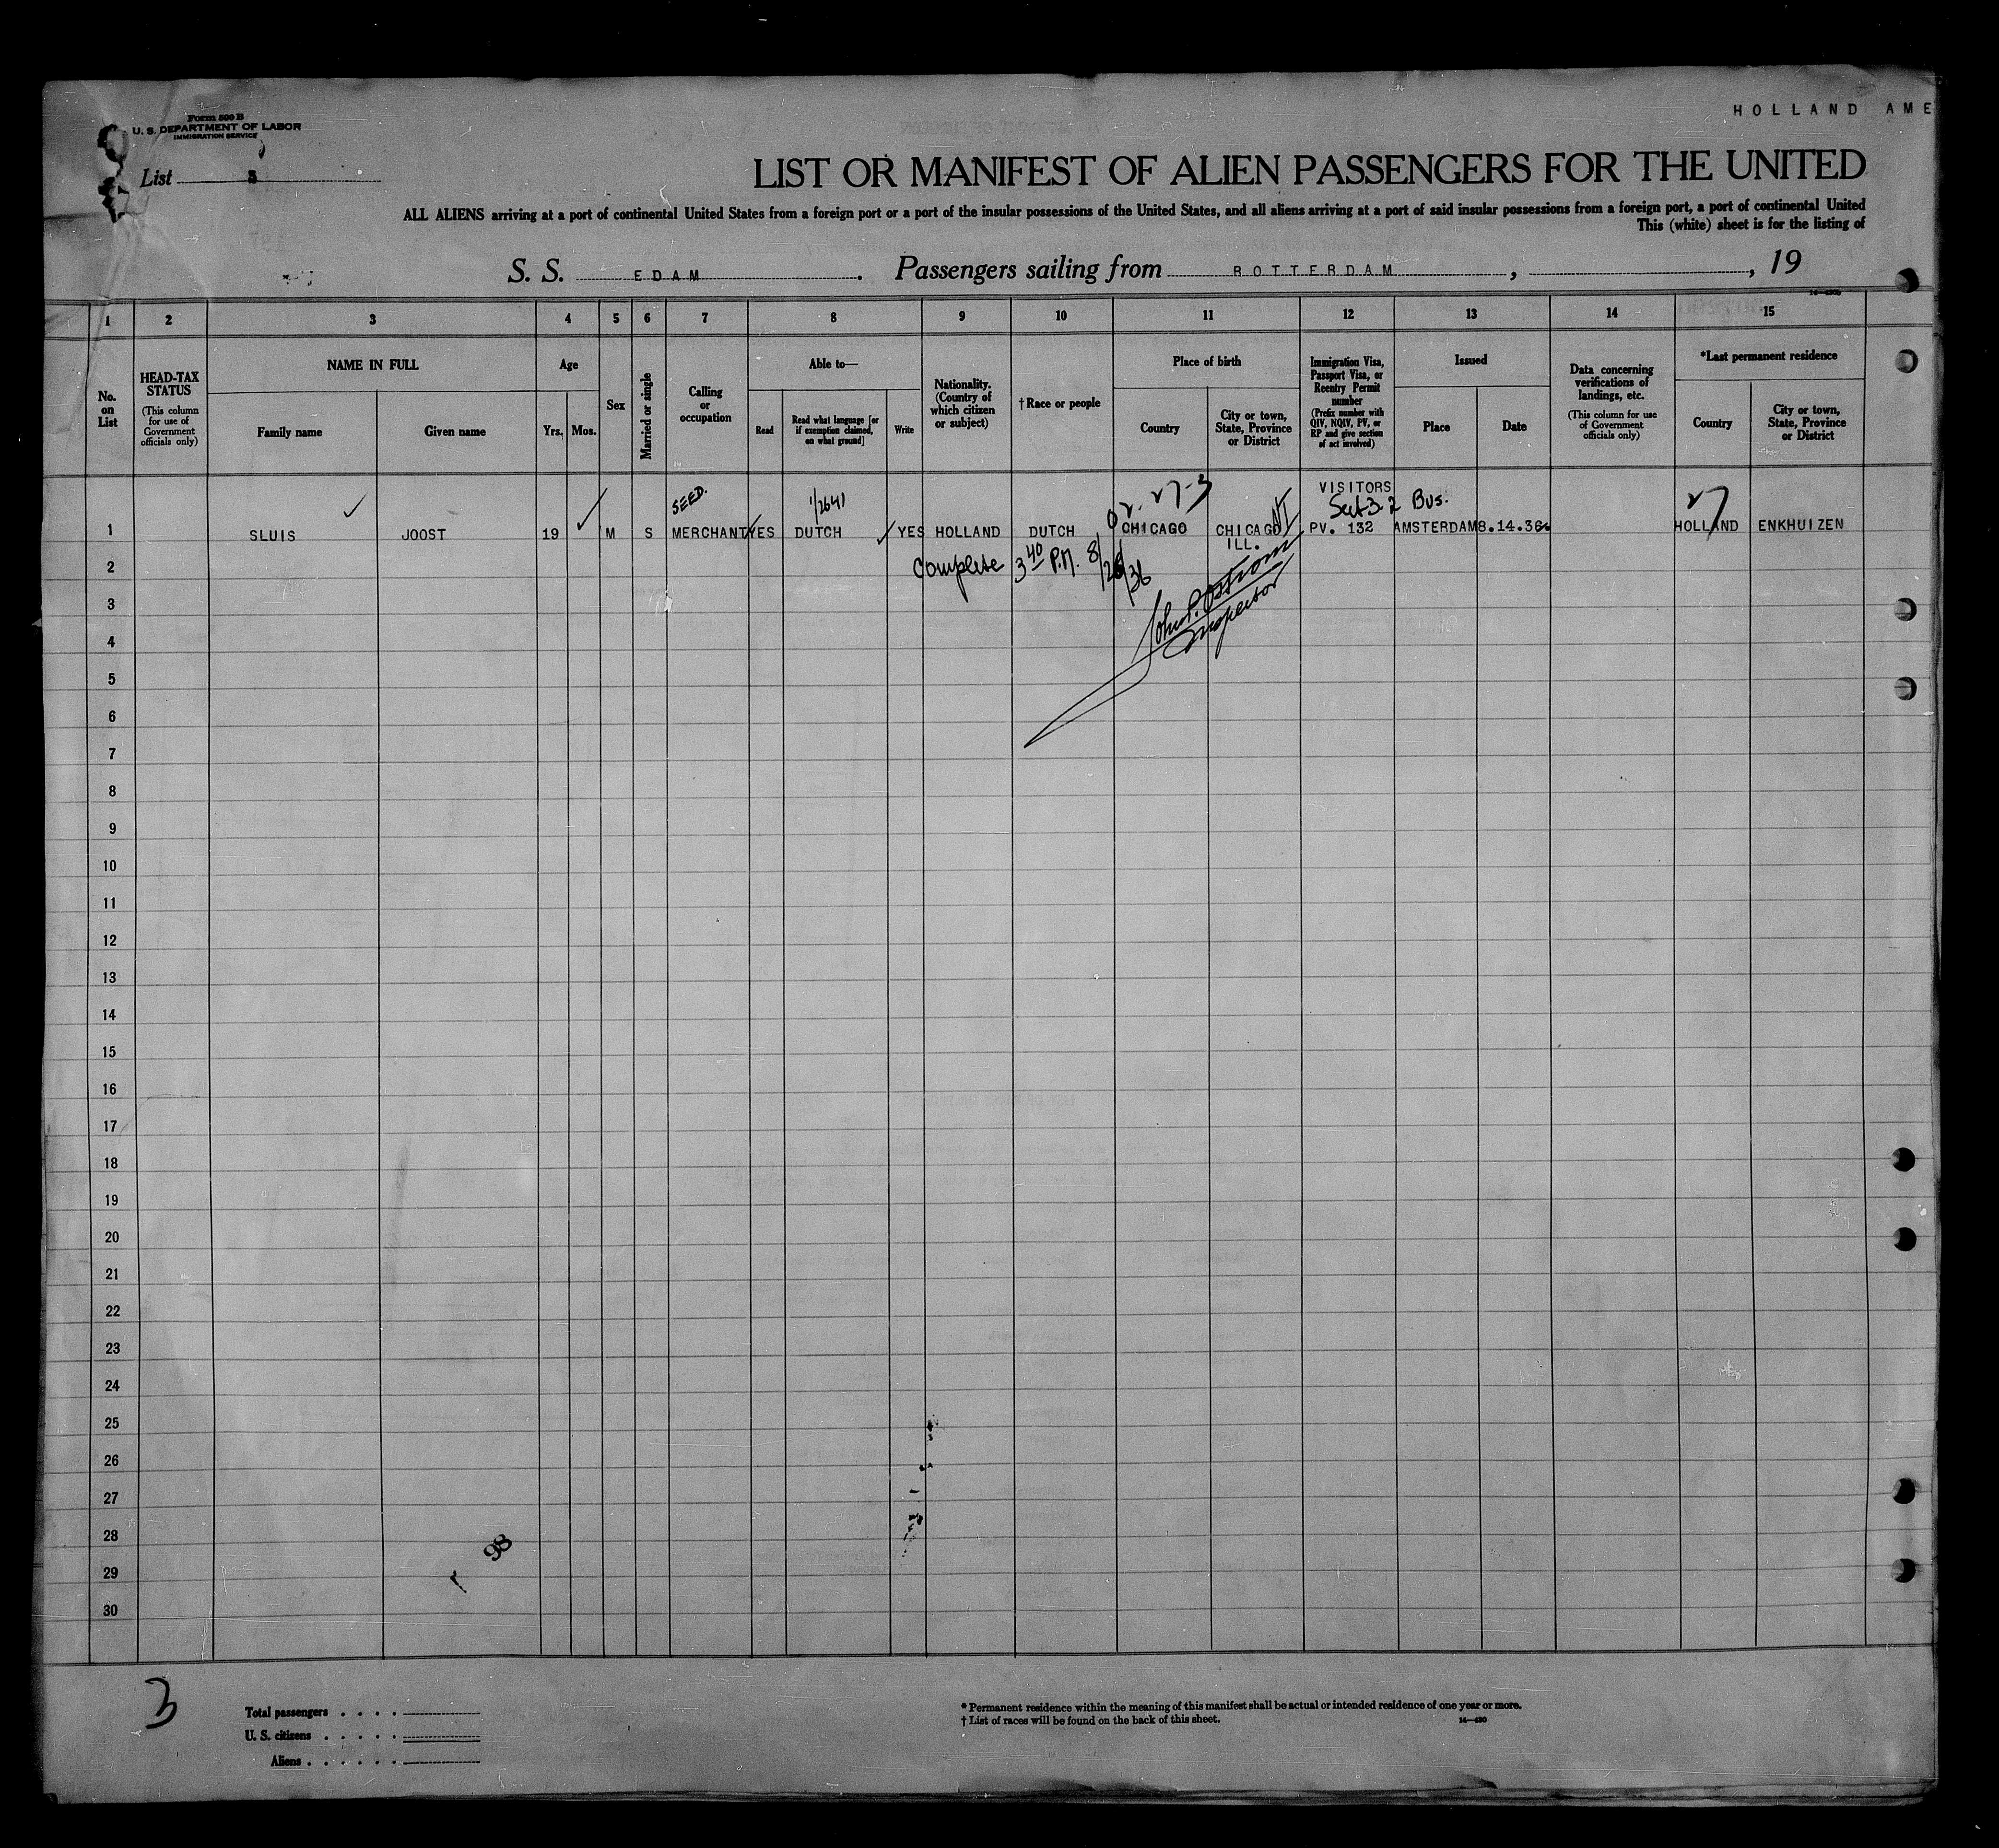 Form 500 B
U. S. DEPARTMENT OF LABOR
IMMIGRATION SERVICE
HOLLAND AME
List 3
LIST OR MANIFEST OF ALIEN PASSENGERS FOR THE UNITED
ALL ALIENS arriving at a port of continental United States from a foreign port or a port of the insular possessions of the United States, and all aliens arriving at a port of said insular possessions from a foreign port, a port of continental United
This (white) sheet is for the listing of
S. S. EDAM. Passengers sailing from ROTTERDAM, , 19
1 2 3 4 5 6 7 8 9 10 11 12 13 14 15
No. on List
HEAD-TAX STATUS
(This column for use of Government officials only)
NAME IN FULL
Family name
Given name
Age
Yrs.
Mos.
Sex
Married or single
Calling or occupation
Able to—
Read
Read what language [or if exemption claimed, on what ground]
Write
Nationality. (Country of which citizen or subject)
†Race or people
Place of birth
Country
City or town, State, Province or District
Immigration Visa, Passport Visa, or Reentry Permit number
(Prefix number with QIV, NQIV, PV, or RP and give section of act involved)
Issued
Place
Date
Data concerning verifications of landings, etc.
(This column for use of Government officials only)
*Last permanent residence
Country
City or town, State, Province or District
SEED.
1/2641
02-27-3
VISITORS
Sect 3-2 Bus.
27
1 SLUIS JOOST 19 M S MERCHANT YES DUTCH YES HOLLAND DUTCH CHICAGO CHICAGO PV. 132 AMSTERDAM 8.14.36 HOLLAND ENKHUIZEN
ILL.
Complete 3 40 P.M. 8/26/36
John P. Ostrom
Inspector
2
3
4
5
6
7
8
9
10
11
12
13
14
15
16
17
18
19
20
21
22
23
24
25
26
27
28
29
30
98
3
Total passengers . . . .
U. S. citizens . . . . .
Aliens . . . . . .
* Permanent residence within the meaning of this manifest shall be actual or intended residence of one year or more.
† List of races will be found on the back of this sheet.
14—430